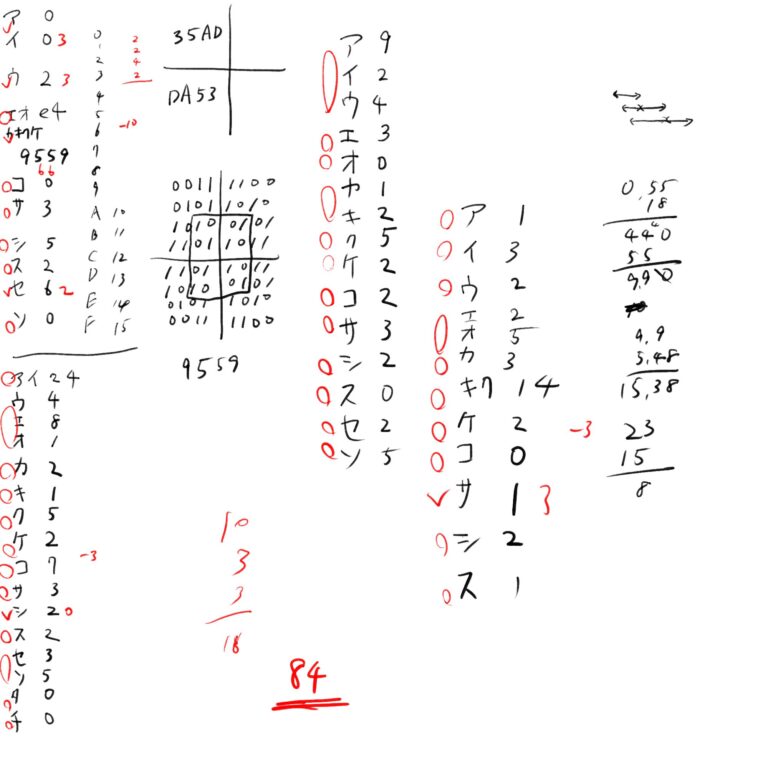 ア 0
イ 0 3
ウ 2 3
エオ e4
カキクケ
9559
66
コ 0
サ 3
シ 5
ス 2
セ 6 2
ソ 0
0
1
2
3
4
5
6
7
8
9
A 10
B 11
C 12
D 13
E 14
F 15
2
2
4
2
-10
35AD
DA53
0011 1100
0101 1010
1010 0101
1101 1011
1101 1011
1010 0101
0101 1010
0011 1100
9559
アイ 24
ウ 4
エ 8
オ 1
カ 2
キ 1
ク 5
ケ 2
コ 7
-3
サ 3
シ 2 0
ス 2
セ 3
ソ 5
タ 0
チ 0
10
3
3
18
84
ア 9
イ 2
ウ 4
エ 3
オ 0
カ 1
キ 2
ク 5
ケ 2
コ 2
サ 3
シ 2
ス 0
セ 2
ソ 5
ア 1
イ 3
ウ 2
エ 2
オ 5
カ 3
キク 14
ケ 2
-3
コ 0
サ 1 3
シ 2
ス 1
0.55
18
440
55
9.90
4.9
5.48
15.38
23
15
8